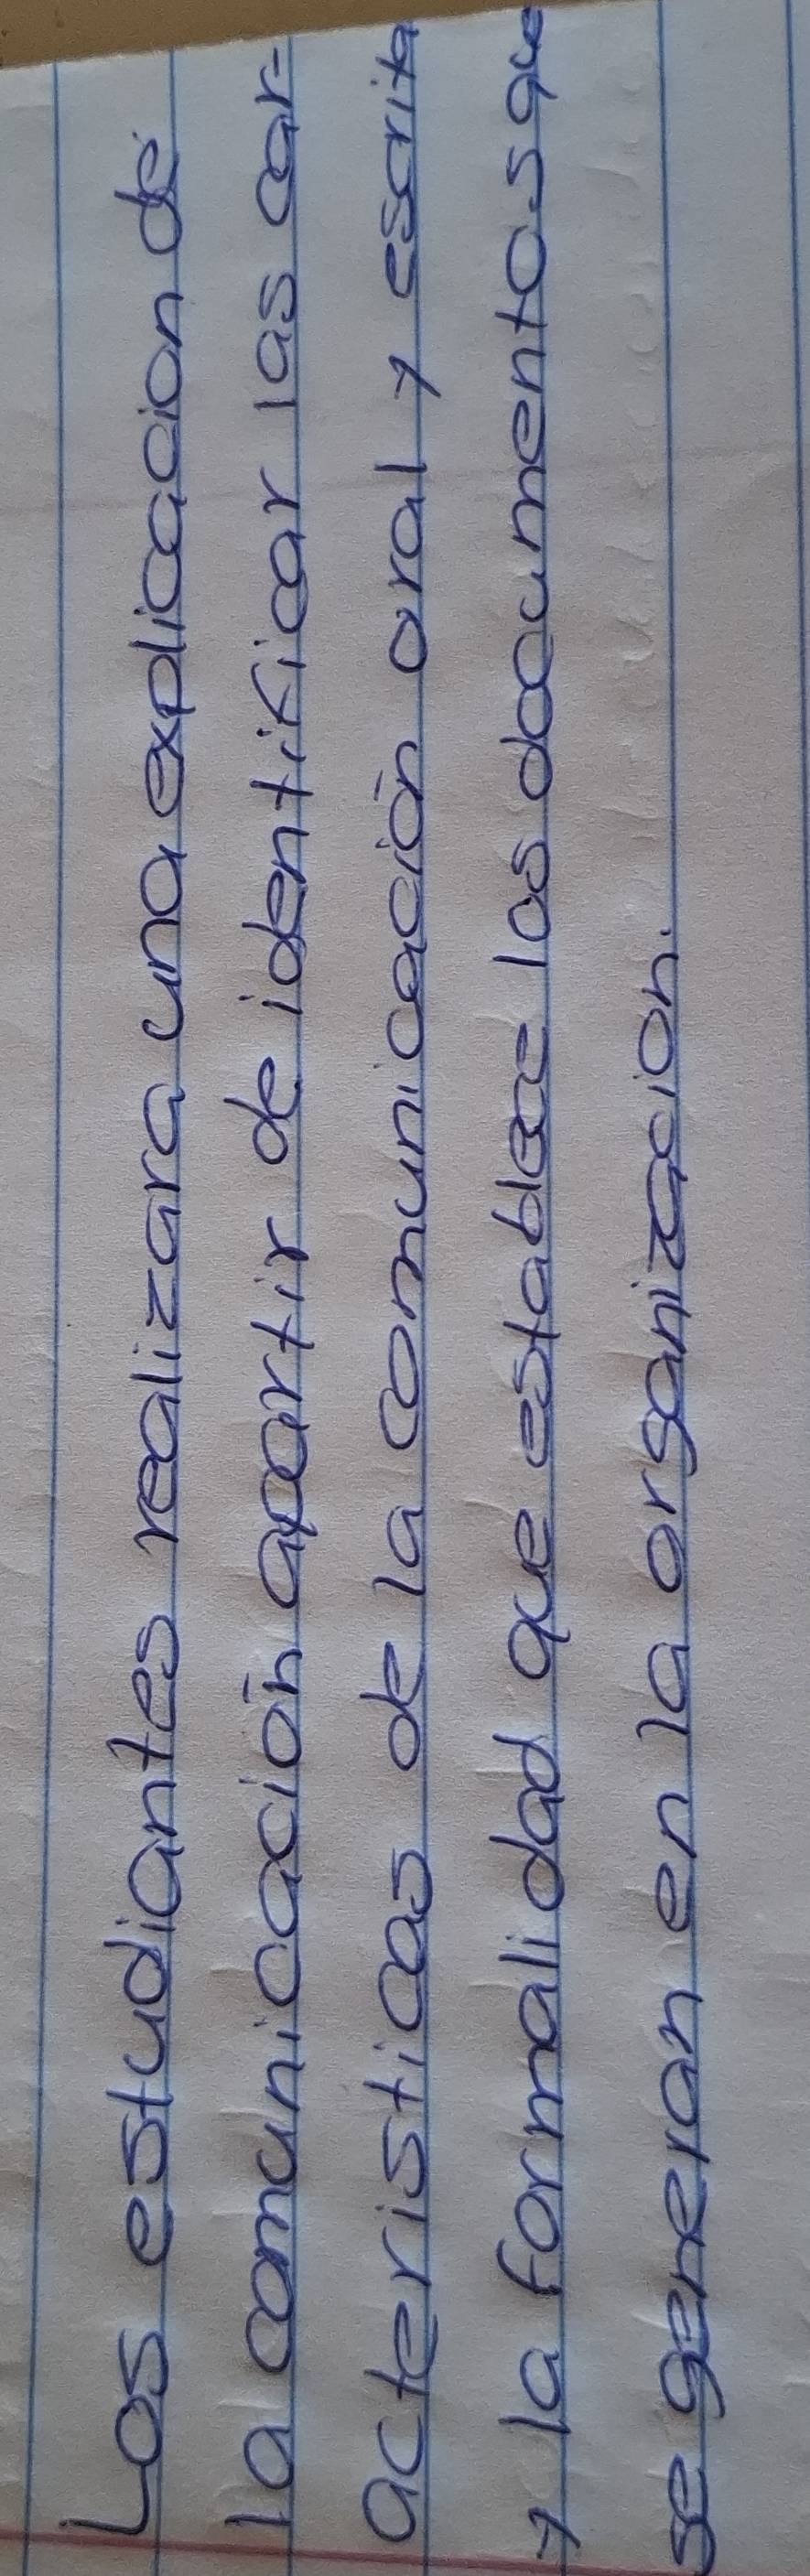 Los estudiantes realizara una explicacion de
la comunicación apartir de identificar las car-
acteristicas de la comunicación oral y escrita
y la formalidad que establece los documentos que
se generan en la organizacion.